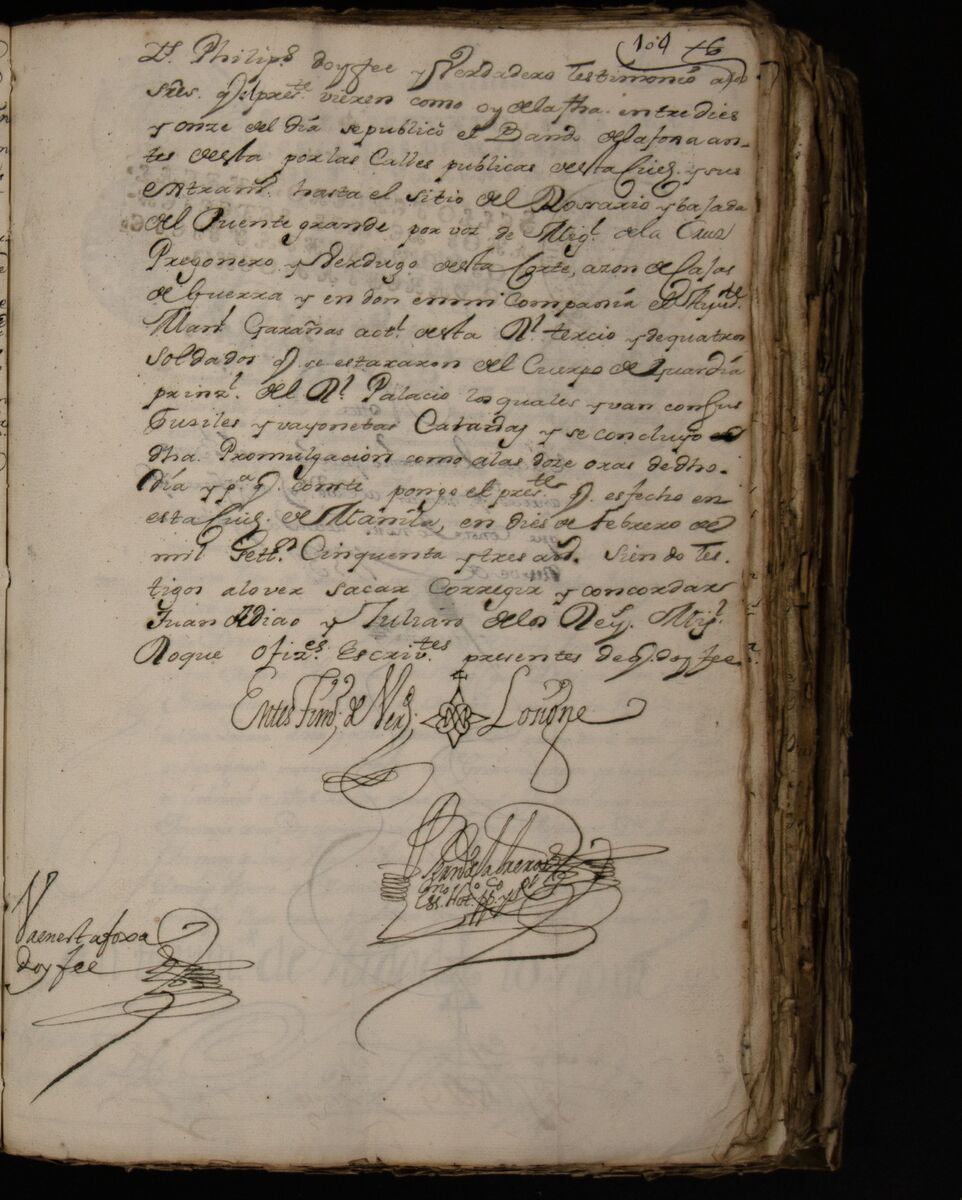 104 76
Ps. Philips. doy fee y Verdadero testimonio a los
Sres. q. el preste. vieren como oy dela fha. entre dies
y onze del dia se publicò el Bando dela foxa an-
tes desta por las Calles publicas desta Ciud. y sus
extram.s hasta el sitio del Rossario y bajada
del Puente grande por voz de Mig.l dela Cruz
Pregonero y Verdugo desta Corte, a son de Cajas
de Guerra y en don en mi Compania el Ayud.te
Man.l Garañas act.l desta R.l tercio y de quatro
soldados q. se estaxaron del Cuerpo de Guardia
prinz.l del R.l Palacio los quales yvan con sus
Fusiles y vayonetas Caladas y se concluyo
dha. Promulgacion como alas doze oras de dho.
dia y p.a q. conste pongo el pres.te q. es fecho en
esta Ciud. de Manila, en dies de Febrero de
mil sett.s Cinquenta y tres a.s siendo tes-
tigos alo ver sacar Corregir y concordar
Juan Adiao y Julian delos Reys. Mig.l
Roque ofiz.es Escriv.tes presentes de q. doy fee
En testim.o de Verd.
va en esta foxa
doy fee